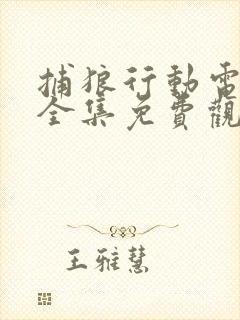 捕狼行動電
全集免費觀
王雅慧